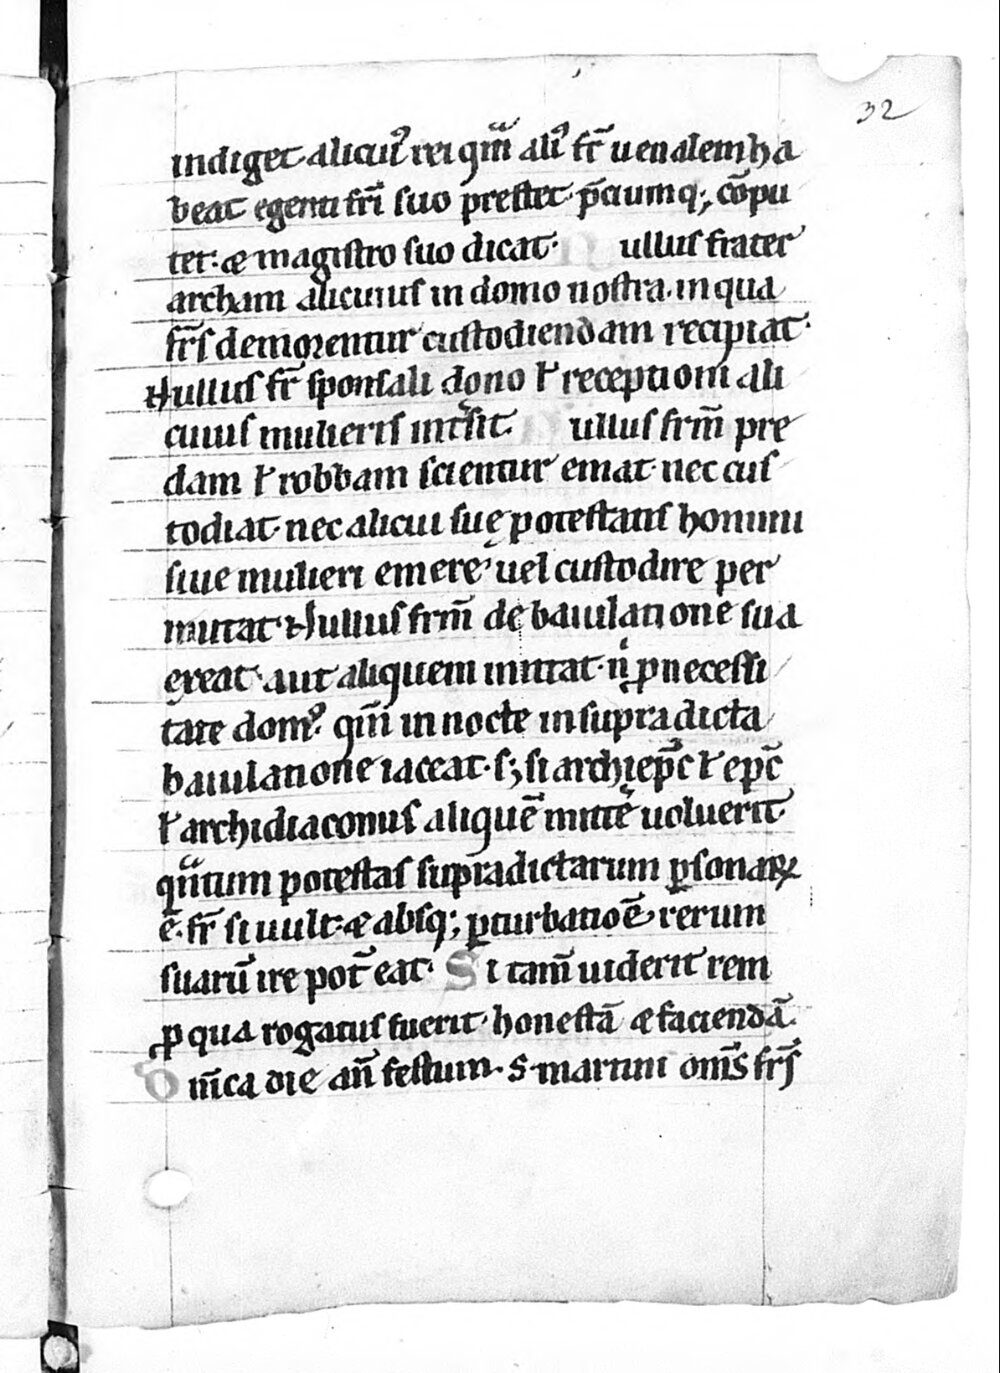 32
indiget alicuiꝰ rei qm̄ aliꝰ fr̄ uenalem ha
beat egenti fr̄i suo prestet· p̄cium q;, cōpu
tet: æ magistro suo dicat· ullus frater
archam alicuius in domo nostra· in qua
fr̄s demorentur custodiendam recipiat·
Nullus fr̄ sponsali dono ł receptioni ali
cuius mulieris intersit· ullus frm̄ pre
dam ł robbam scientur emat· nec cus
todiat· nec alicui suę potestatis homini
siue mulieri emere uel custodire per
mittat· Nullus frm̄ de baiulatione sua
exeat· aut aliquem mittat· nͥ ꝓ necessi
tate domꝰ qm̄ in nocte in supradicta
baiulatione iaceat· s; si archiep̄c ł ep̄c
ł archidiaconus aliquē mittē uoluerit·
qᵃntum potestas supradictarum ꝑsonaꝝ
ē· fr̄ si uult· æ absq; ꝑturbatiōe rerum
suarū ire pot̄ eat· Si tam̄ uiderit rem
ꝓ qua rogatus fuerit· honestā æ faciendā·
Dn̄ica die an̄ festum· s· martini om̄s fr̄s